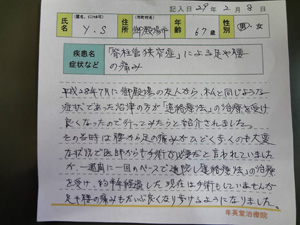 記入日 29年 2月 8日
氏名 (匿名、イニシャル可) Y.S 住所 (市町村名) 御殿場市 年齢 67歳 性別 男・女
疾患名 症状など 「脊柱管狭窄症」による足や腰
の痛み
平成28年7月に御殿場の友人から、私と同じような
症状であった沼津の方が「遠絡療法」の治療を受け
良くなったので行ってみたらと紹介されました。
その当時は腰から足の痛みがひどく歩くのも大変
な状況で医師からも手術が必要だと言われていました
が一週間に一回のペースで通院し「遠絡療法」の治療
を受け、約半年経過した現在は手術もしていませんが
足も腰の痛みもだいぶ良くなり歩けるようになりました。
年英堂治療院